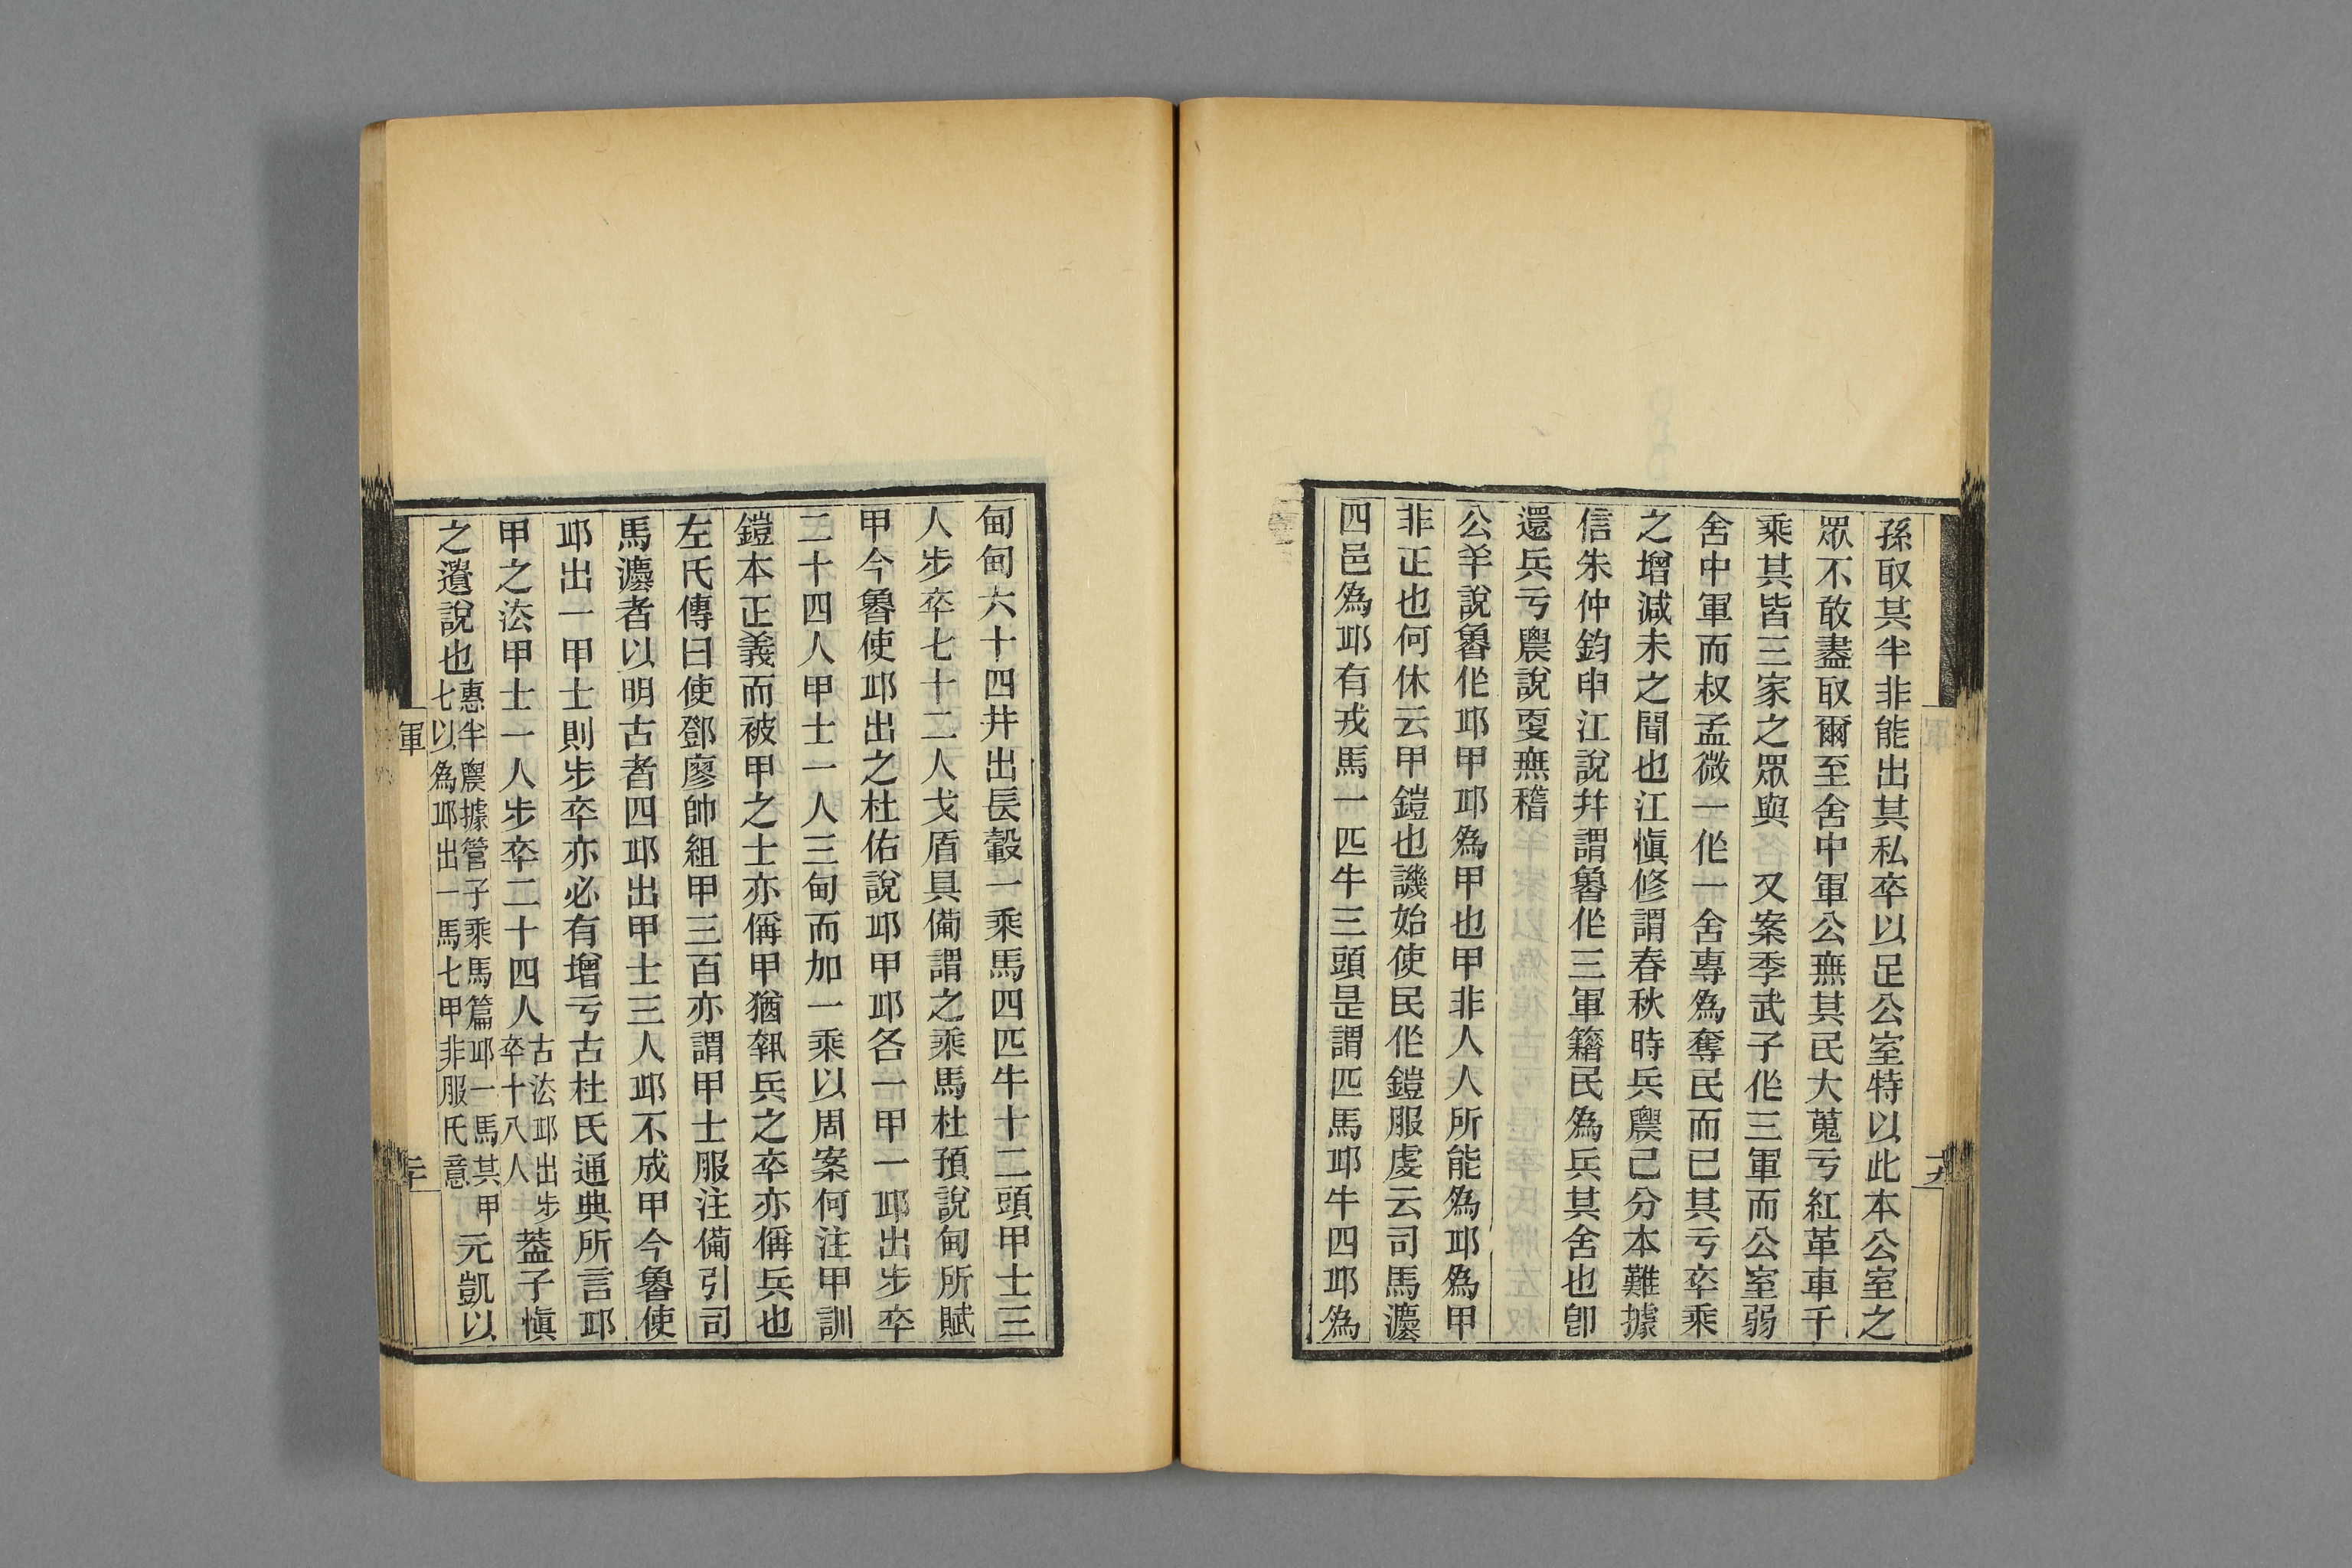 孫取其半非能出其私卒以足公室特以此本公室之
眾不敢盡取爾至舍中軍公無其民大蒐亏紅革車千
乘其皆三家之眾與 又案季武子作三軍而公室弱
舍中軍而叔孟微一作一舍專為奪民而已其亏卒乘
之增減未之聞也江慎修謂春秋時兵農已分本難據
信朱仲鈞申江說并謂魯作三軍籍民為兵其舍也卽
還兵亏農說更無稽
公羊說魯作丘甲丘為甲也甲非人人所能為丘為甲
非正也何休云甲鎧也譏始使民作鎧服虔云司馬灋
四邑為丘有戎馬一匹牛三頭是謂匹馬丘牛四丘為
甸甸六十四井出長轂一乘馬四匹牛十二頭甲士三
人步卒七十二人戈盾具備謂之乘馬杜預說甸所賦
甲今魯使丘出之杜佑說丘甲丘各一甲一丘出步卒
二十四人甲士一人三甸而加一乘以周案何注甲訓
鎧本正義而被甲之士亦偁甲猶執兵之卒亦偁兵也
左氏傳曰使鄧廖帥組甲三百亦謂甲士服注備引司
馬灋者以明古者四丘出甲士三人丘不成甲今魯使
丘出一甲士則步卒亦必有增亏古杜氏通典所言丘
甲之法甲士一人步卒二十四人古法丘出步卒十八人葢子慎
之遺說也惠半農據管子乘馬篇丘一馬其甲七以為丘出一馬七甲非服氏意元凱以
軍
十九
軍
二十